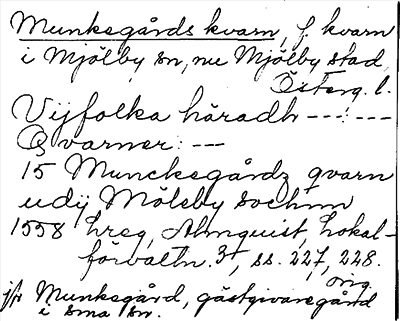 Munksgårds kvarn, f. kvarn
i Mjölby sn, nu Mjölby stad,
Österg. l.
Vijfolka häradh ---:---
Qvarner: ---
15 Munckegårdz qvarn
udÿ Möleby sochnn
1558 hreg, Almquist, Lokal-
förvaltn. 3, ss. 227, 228.
orig.
jfr Munkgård, gästgivaregård
i sma sn.